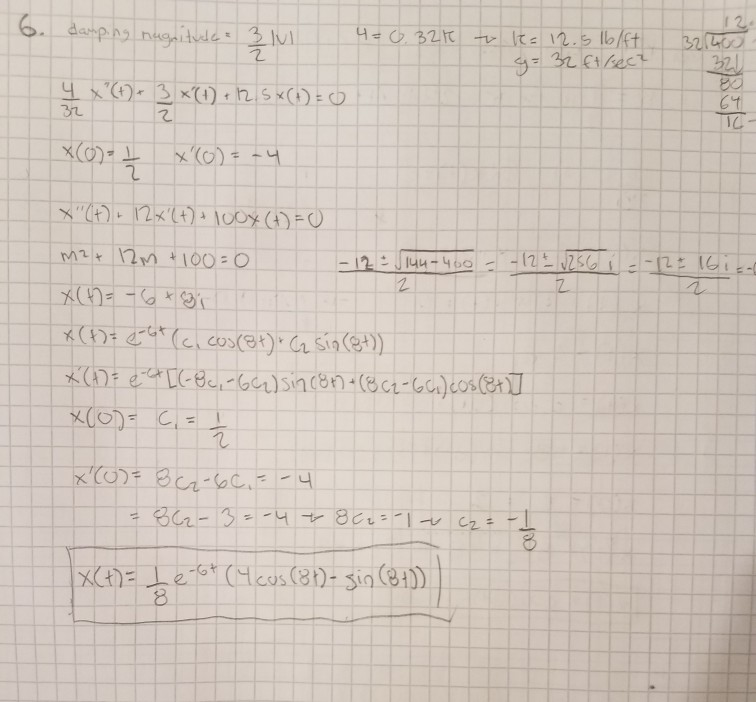 6. damping magnitude = 3/2 |v| 4 = 0.32k → k = 12.5 lb/ft
g = 32 ft/sec²
12.
32√400
32↓
80
64
16
4/32 x''(t) + 3/2 x'(t) + 12.5x(t) = 0
x(0) = 1/2 x'(0) = -4
x''(t) + 12x'(t) + 100x(t) = 0
m² + 12m + 100 = 0 (-12 ± √(144-400))/2 = (-12 ± √256 i)/2 = (-12 ± 16i)/2 =
x(t) = -6 + 8i
x(t) = e^(-6t) (c₁ cos(8t) + c₂ sin(8t))
x'(t) = e^(-6t) [(-8c₁ - 6c₂) sin(8t) + (8c₂ - 6c₁) cos(8t)]
x(0) = c₁ = 1/2
x'(0) = 8c₂ - 6c₁ = -4
= 8c₂ - 3 = -4 → 8c₂ = -1 → c₂ = -1/8
x(t) = 1/8 e^(-6t) (4cos(8t) - sin(8t))